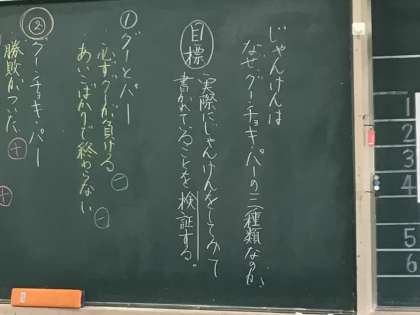 じゃんけんは
なぜグー・チョキ・パーの三種類なのか、
目標
実際にじゃんけんをしてみて
書かれていることを検証する。
① グーとパー
・必ずグーが負ける ⊖
・あいこばかりで終わらない ⊖
② グー・チョキ・パー
勝敗がつ
⊕
⊕
1
2
3
4
5
6